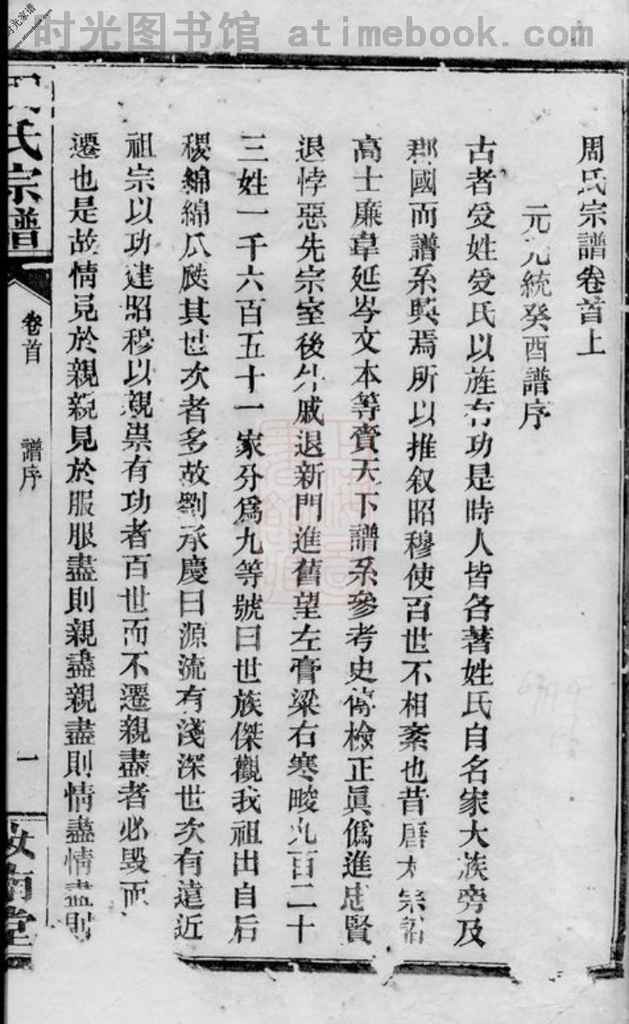 时光图书馆 www.atimebook.com
周氏宗譜卷首上
元元統癸酉譜序
古者受姓受氏以旌有功是時人皆各著姓氏自名家大族旁及
郡國而譜系興焉所以推叙昭穆使百世不相紊也昔唐太宗詔
高士廉韋延岑文本等責天下譜系參考史傳檢正眞僞進忠賢
退悖惡先宗室後外戚退新門進舊望左膏粱右寒畯九百二十
三姓一千六百五十一家分爲九等號曰世族傑觀我祖出自后
稷綿綿瓜瓞其世次者多故劉承慶曰源流有淺深世次有遠近
祖宗以功建昭穆以親祟有功者百世而不遷親盡者必毁而
遷也是故情見於親親見於服服盡則親盡親盡則情盡情盡則
氏宗譜
卷首
譜序
一
汝南堂